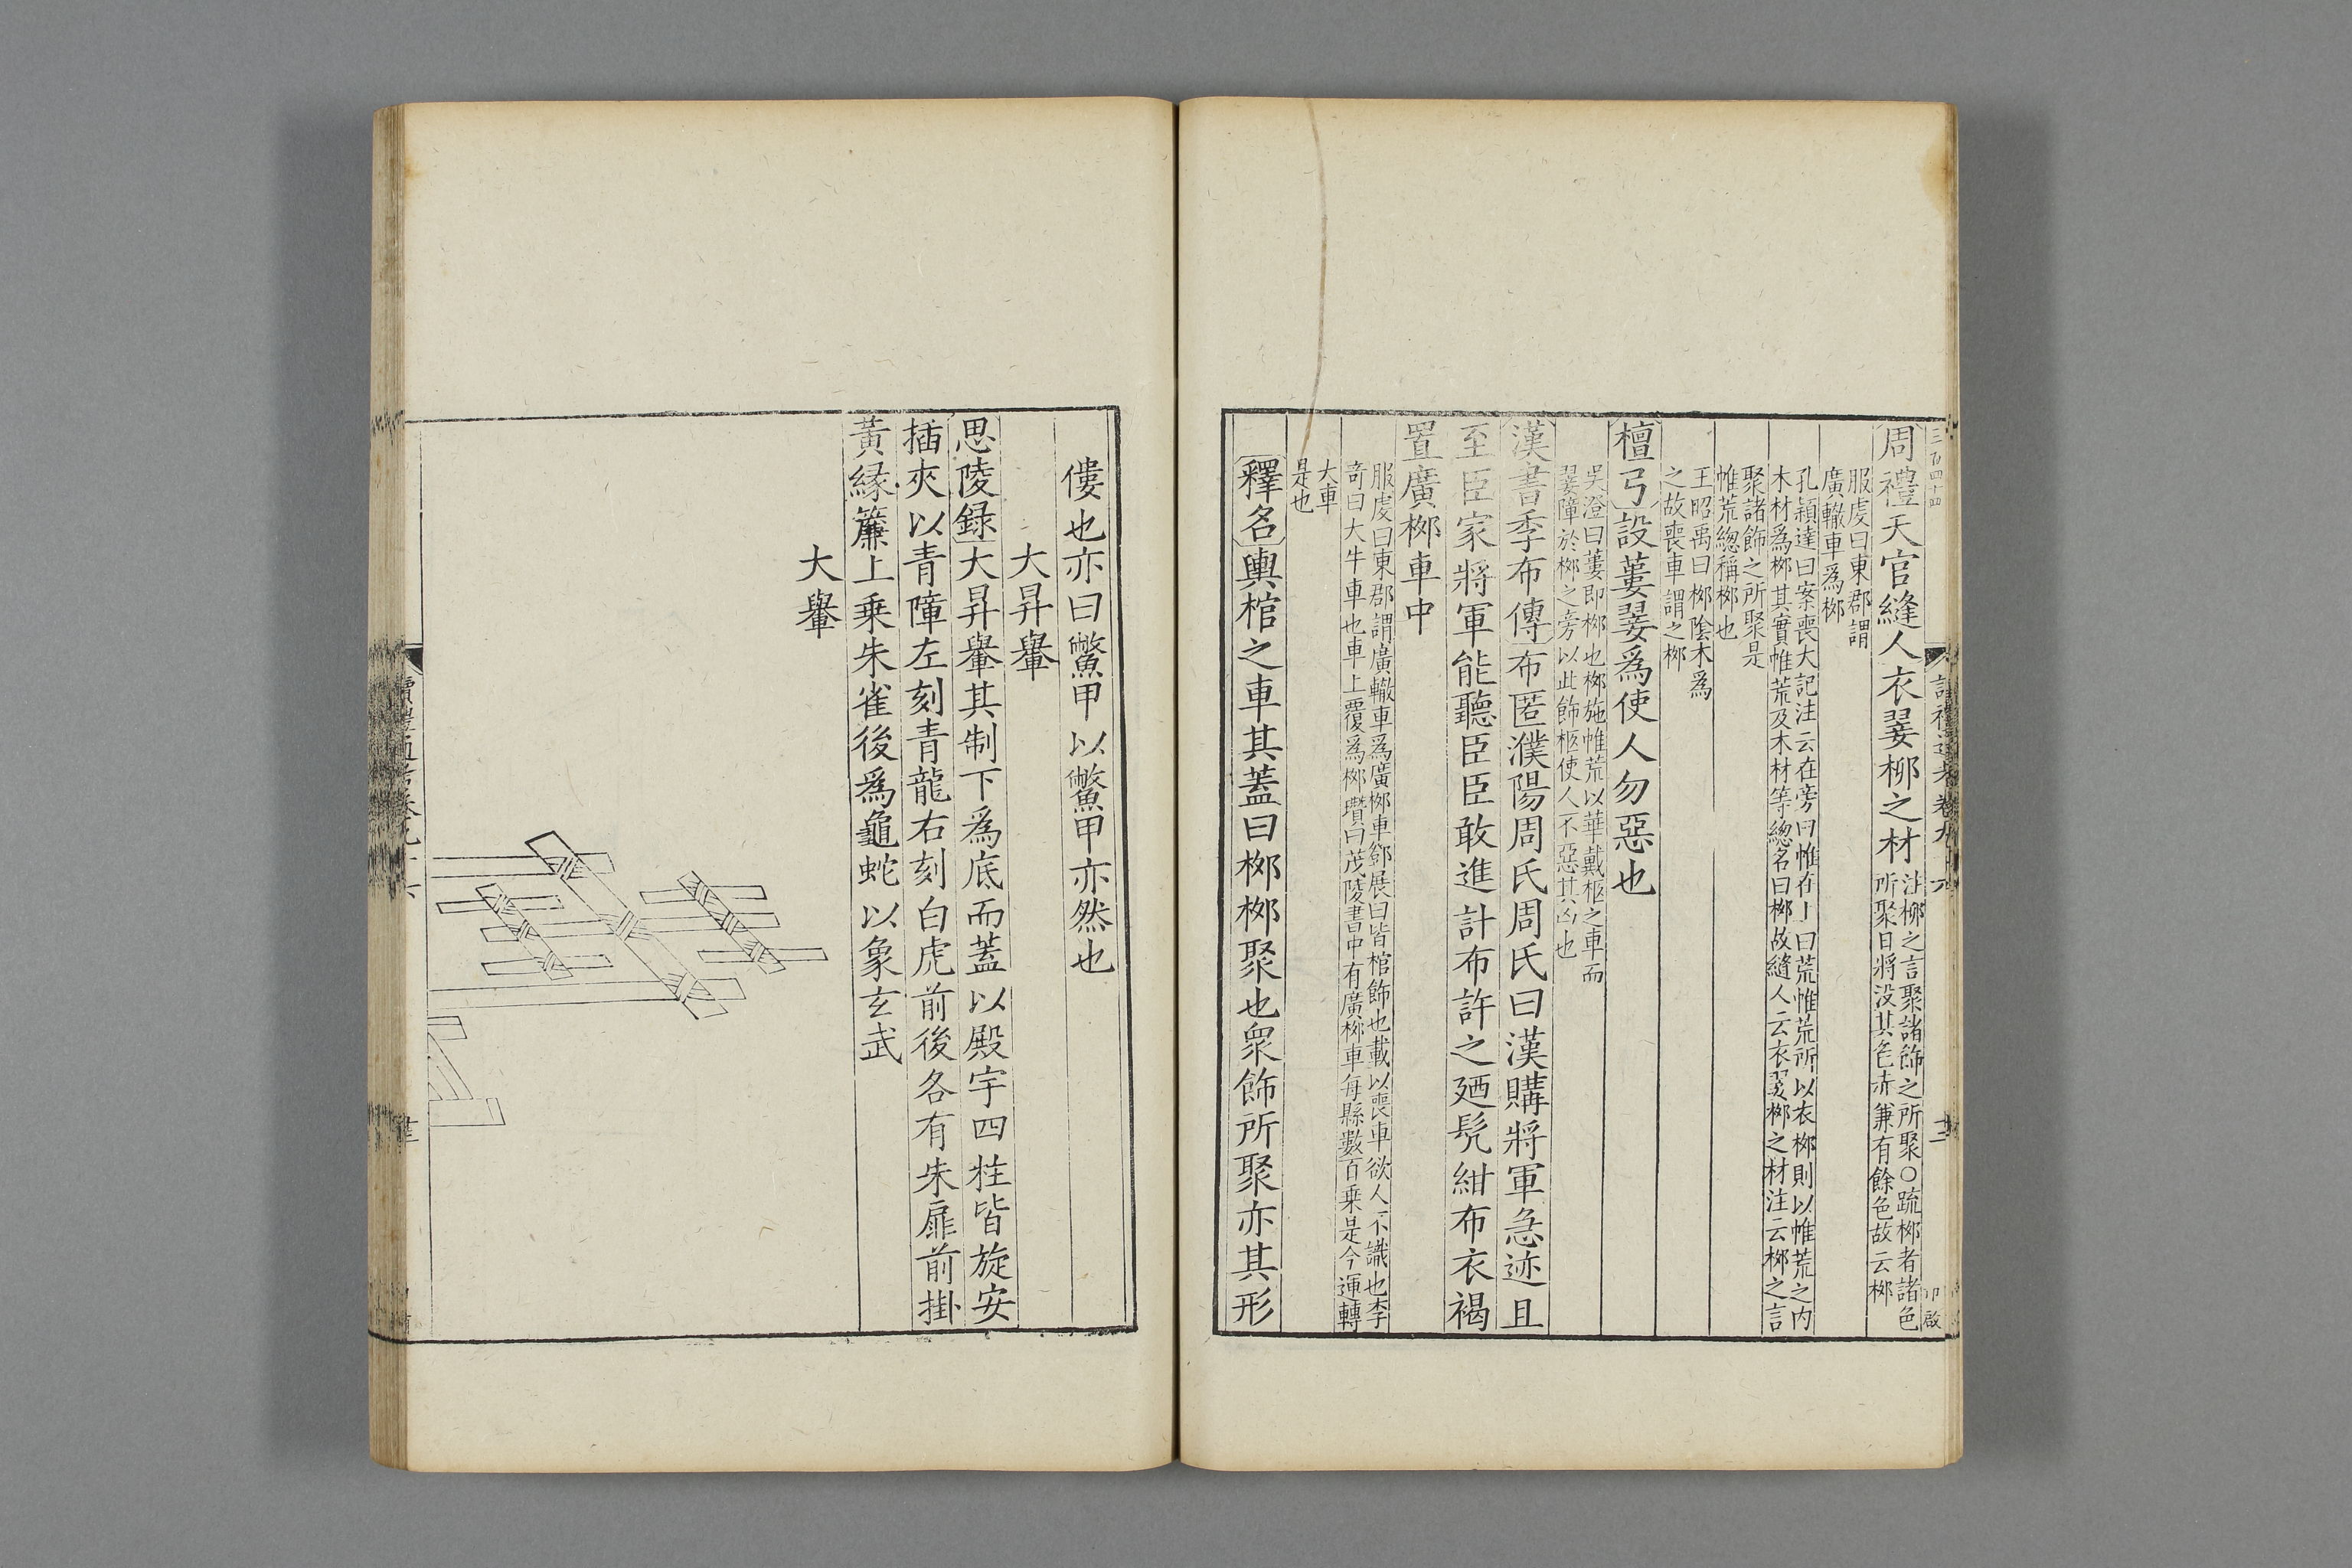 三百四十四
讀禮通考卷九十六
周禮天官縫人衣翣桺之材
注桺之言聚諸飾之所聚○疏桺者諸色
所聚日將没其色赤兼有餘色故云桺
服虔曰東郡謂
廣轍車爲桺
孔穎達曰案喪大記注云在旁曰帷在上曰荒帷荒所以衣桺則以帷荒之内
木材爲桺其實帷荒及木材等緫名曰桺故縫人云衣翣桺之材注云桺之言
聚諸飾之所聚是
帷荒緫稱桺也
王昭禹曰桺陰木爲
之故喪車謂之桺
檀弓設蔞翣爲使人勿惡也
吳澄曰蔞即桺也桺施帷荒以華戴柩之車而
翣障於桺之旁以此飾柩使人不惡其凶也
漢書季布傳布匿濮陽周氏周氏曰漢購將軍急迹且
至臣家將軍能聽臣臣敢進計布許之廼髠紺布衣褐
置廣桺車中
服虔曰東郡謂廣轍車爲廣桺車鄧展曰皆棺飾也載以喪車欲人不識也李
竒曰大牛車也車上覆爲桺瓚曰茂陵書中有廣桺車每縣數百乗是今運轉
大車
是也
釋名輿棺之車其蓋曰桺桺聚也衆飾所聚亦其形
僂也亦曰鱉甲以鱉甲亦然也
大昇轝
思陵録大昇轝其制下爲底而蓋以殿宇四柱皆旋安
插夾以青障左刻青龍右刻白虎前後各有朱扉前掛
黄縁簾上乗朱雀後爲龜蛇以象玄武
大轝
讀禮通考卷九十六